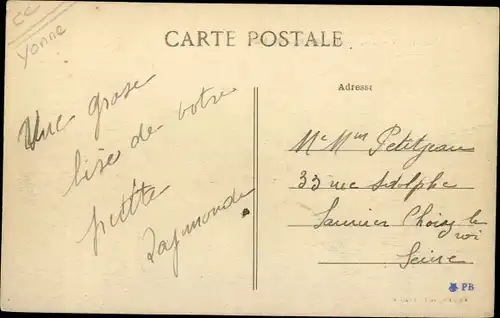 CC
Yonne
CARTE POSTALE
Adresse
Une grose
bise de votre
petite
Raymonde
Mr Mme Petitjean
33 rue Adolphe
Saunier Choisy le
roi
Seine
PB